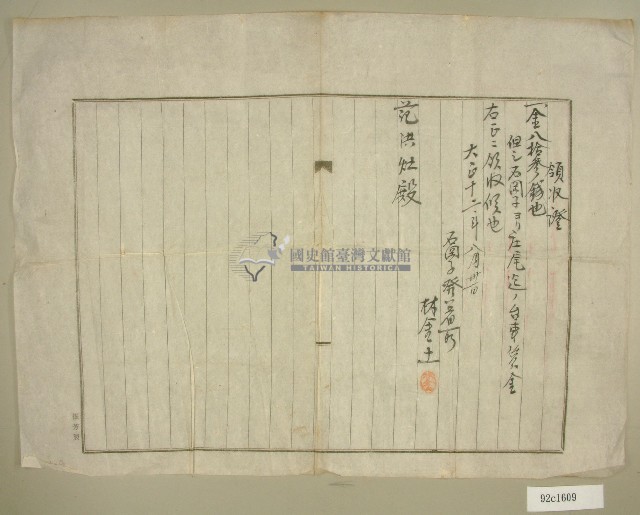 領收證
一金八拾參錢也
但シ石岡子ヨリ庄尾迄ノ台車賃金
右正ニ領收候也
大正十二年八月卅一日
石岡子發着所
林金土
范洪灶殿
國史館臺灣文獻館
TAIWAN HISTORICA
92c1609